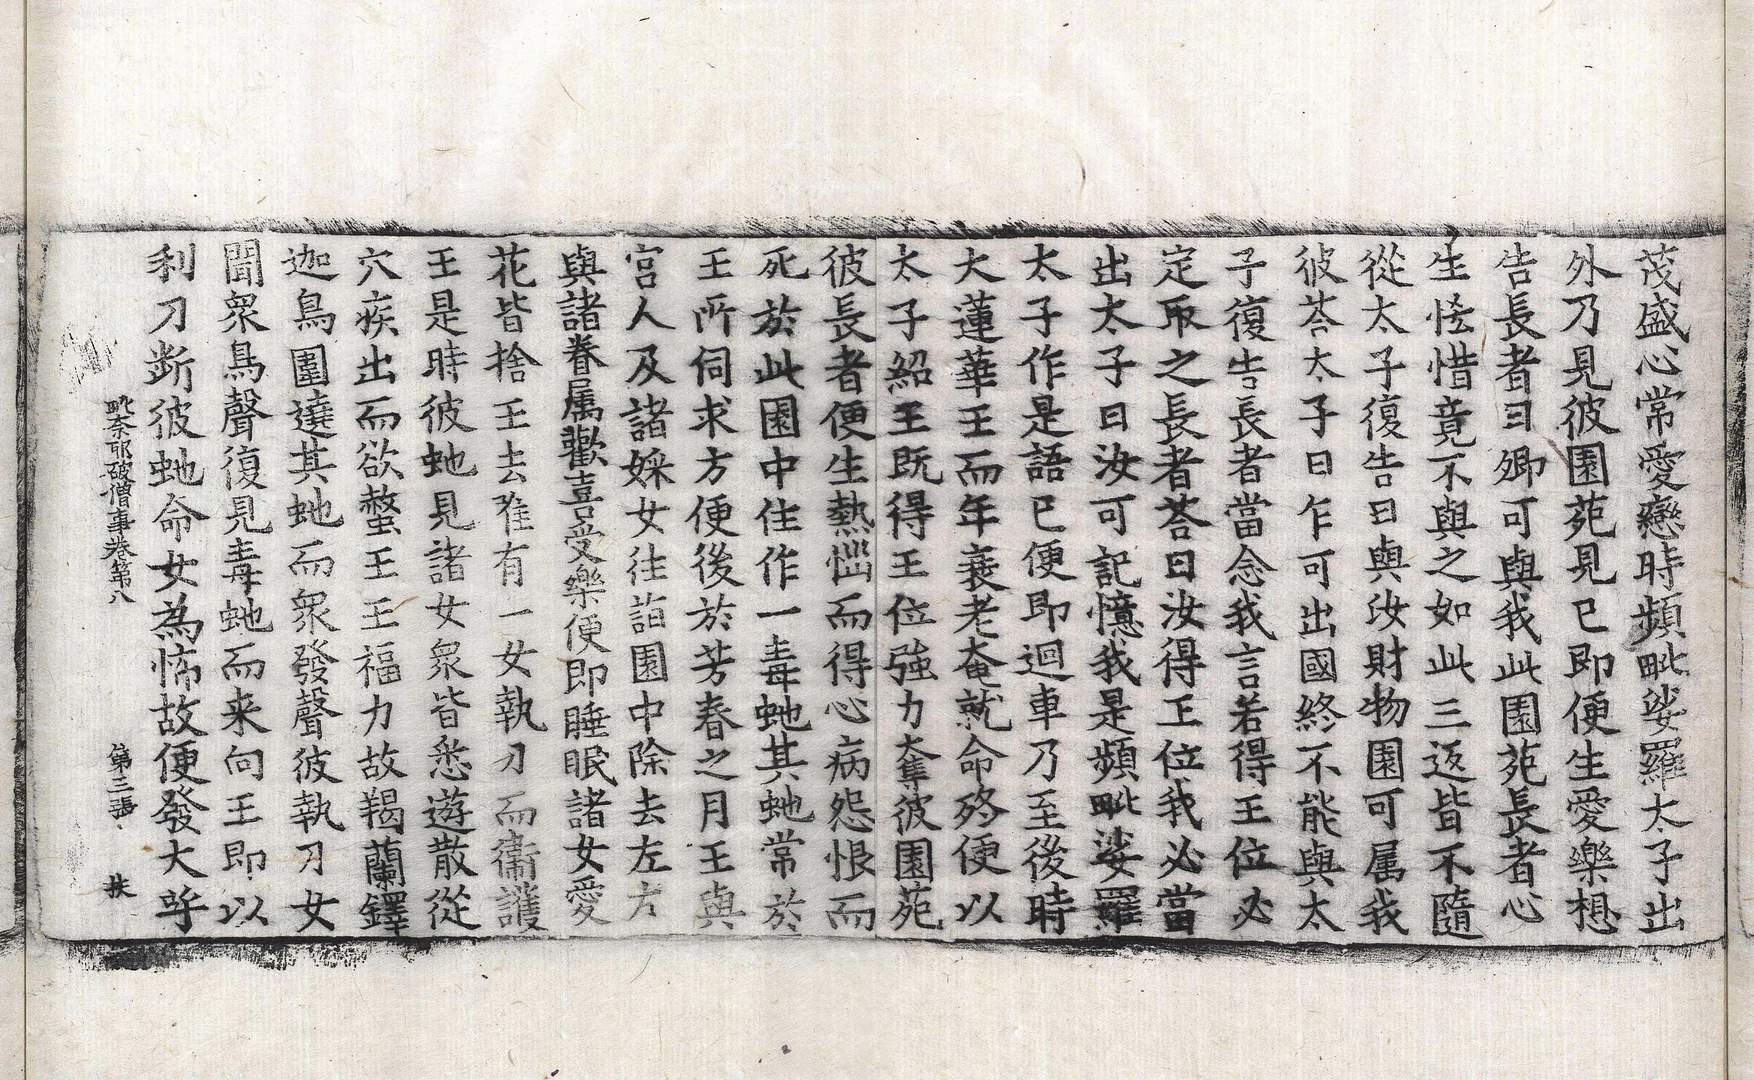 茂盛心常愛戀時頻毗娑羅太子出
外乃見彼園苑見已即便生愛樂想
告長者曰卿可與我此園苑長者心
生恡惜竟不與之如此三返皆不隨
從太子復告曰與汝財物園可属我
彼荅太子曰乍可出國終不能與太
子復告長者當念我言若得王位必
定取之長者荅曰汝得王位我必當
出太子曰汝可記憶我是頻毗娑羅
太子作是語已便即迴車乃至後時
大蓮華王而年衰老奄就命終便以
太子紹王既得王位強力奪彼園苑
彼長者便生熱惱而得心病怨恨而
死於此園中住作一毒虵其虵常於
王所伺求方便後於芳春之月王與
宮人及諸婇女往詣園中除去左右
與諸眷属歡喜受樂便即睡眠諸女愛
花皆捨王去唯有一女執刀而衞護
王是時彼虵見諸女衆皆悉遊散從
穴疾出而欲螫王王福力故羯蘭鐸
迦鳥圍遶其虵而衆發聲彼執刀女
聞衆鳥聲復見毒虵而来向王即以
利刀斫彼虵命女為怖故便發大㖃
毗奈耶破僧事卷第八　第三張　扶